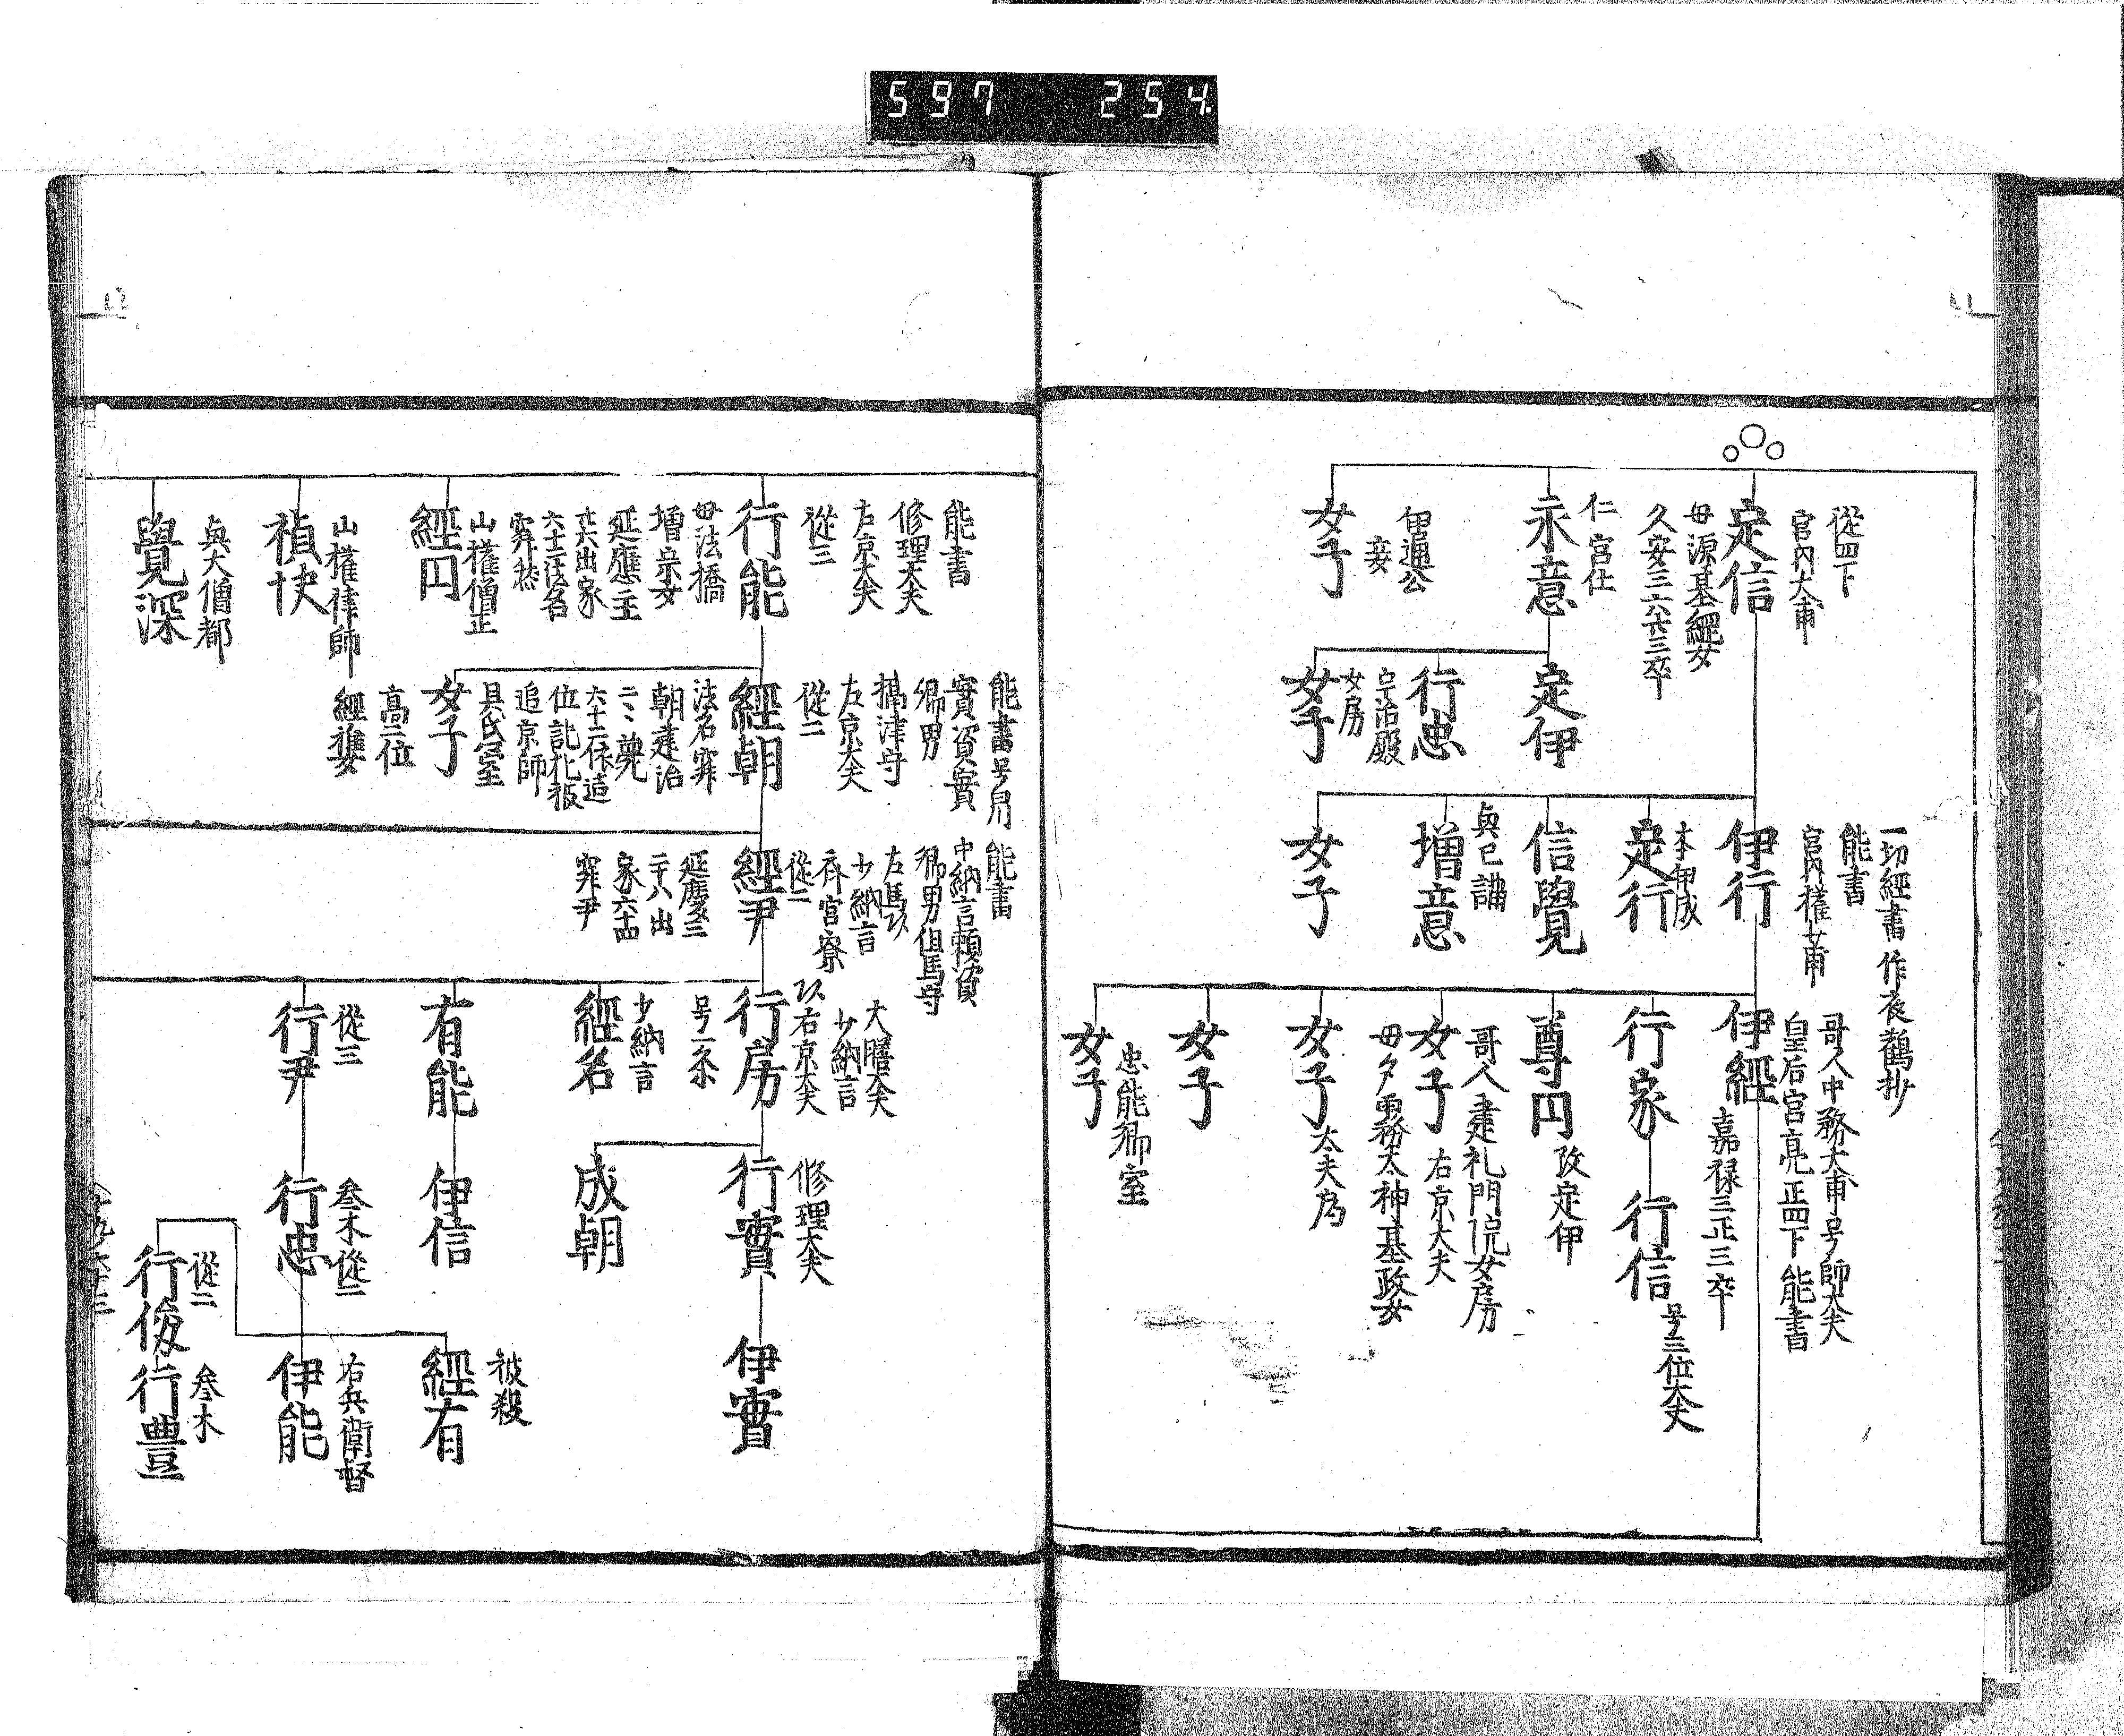 597 254
從四下
宮内大甫
定信
母源基綱女
久安三六廿三卒
仁宮仕
永意
伊通公
妾
女子
定伊
行忠
宇治殿
女房
女子
一切經書 作夜鶴抄
能書
宮内權少甫
伊行
本伊成
定行
信覺
與已講
増意
女子
哥人中務大甫号師大夫
皇后宮亮正四下 能書
伊經
嘉禄三正三卒
行家
行信
号三位大夫
尊円
改定伊
哥人建礼門院女房
女子
右京大夫
母夕雰務大神基政女
女子
女子
忠能卿室
女子
能書
修理大夫
左京大夫
從三
行能
母法橋
増宗女
延應二主
廿六出家
六十二法名
寂然
山權僧正
經円
山權律師
禎快
與大僧都
覺深
實資實
卿男
攝津守
左京大夫
從二
經朝
法名寂
朝建治
二二薨
六十二
追京師
具氏室
女子
高二位
經雅妾
能書
中納言頼資
卿男但馬守
左馬
少納言
齊宮寮
從二
經尹
延慶三
二十八出
家六十四
寂尹
大膳大夫
少納言
右京大夫
行房
号一条
少納言
經名
有能
從三
行尹
修理大夫
行實
成朝
伊信
叅木從二
行忠
從二
行俊
伊實
被殺
經有
右兵衛督
伊能
叅木
行豊